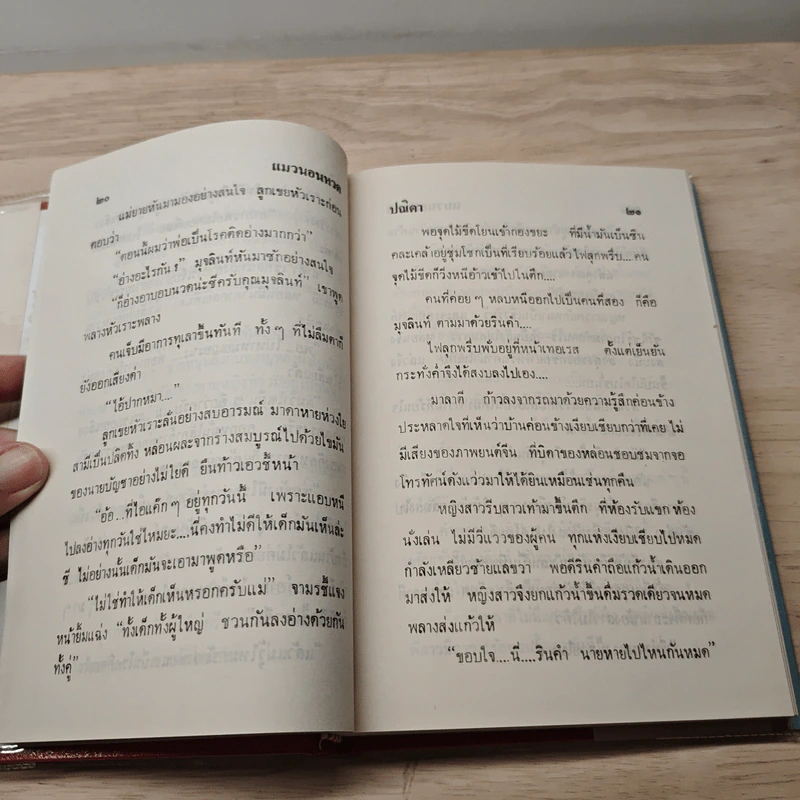 ๒๐
แมวนอนหวด
แม่ยายหันมามองอย่างสนใจ ลูกเขยหัวเราะก่อน
ตอบว่า
“ตอนนี้ผมว่าพ่อเป็นโรคติดอ่างมากกว่า”
“อ่างอะไรกัน ?” มุจลินท์หันมาซักอย่างสนใจ
“ก็อ่างอาบอบนวดน่ะซีครับคุณมุจลินท์” เขาพูด
พลางหัวเราะพลาง
คนเจ็บมีอาการทุเลาขึ้นทันที ทั้งๆ ที่ไม่ลืมตาก็
ยังออกเสียงด่า
“ไอ้ปากหมา....”
ลูกเขยหัวเราะลั่นอย่างสบอารมณ์ มาดาหายห่วงใย
สามีเป็นปลิดทิ้ง หล่อนผละจากร่างสมบูรณ์ไปด้วยไขมัน
ของนายบัญชาอย่างไม่ไยดี ยืนท้าวเอวชี้หน้า
“อ้อ...ที่ไอแค็กๆ อยู่ทุกวันนี้ เพราะแอบหนี
ไปลงอ่างทุกวันใช่ไหมยะ....นี่คงทำไม่ดีให้เด็กมันเห็นล่ะ
ซี ไม่อย่างนั้นเด็กมันจะเอามาพูดหรือ”
“ไม่ใช่ทำให้เด็กเห็นหรอกครับแม่” จามรชี้แจง
หน้ายิ้มแฉ่ง “ทั้งเด็กทั้งผู้ใหญ่ ชวนกันลงอ่างด้วยกัน
ทั้งคู่”
ปณิตา
๒๑
พอจุดไม้ขีดโยนเข้ากองขยะ ที่มีน้ำมันเบ็นซิน
คละเคล้าอยู่ชุ่มโชกเป็นที่เรียบร้อยแล้ว ไฟลุกพรึ่บ...คน
จุดไม้ขีดก็วิ่งหนีอ้าวเข้าไปในตึก....
คนที่ค่อยๆ หลบหนีออกไปเป็นคนที่สอง ก็คือ
มุจลินท์ ตามมาด้วยรินคำ....
ไฟลุกพรึ่บพั่บอยู่ที่หน้าเทอเรส ตั้งแต่เย็นยัน
กระทั่งค่ำจึงได้สงบลงไปเอง....
มาลาตี ก้าวลงจากรถมาด้วยความรู้สึกค่อนข้าง
ประหลาดใจที่เห็นว่าบ้านค่อนข้างเงียบเชียบกว่าที่เคย ไม่
มีเสียงของภาพยนต์จีน ที่บิดาของหล่อนชอบชมจากจอ
โทรทัศน์ดังแว่วมาให้ได้ยินเหมือนเช่นทุกคืน
หญิงสาวรีบสาวเท้ามาขึ้นตึก ที่ห้องรับแขก ห้อง
นั่งเล่น ไม่มีวี่แววของผู้คน ทุกแห่งเงียบเชียบไปหมด
กำลังเหลียวซ้ายแลขวา พอดีรินคำถือแก้วน้ำเดินออก
มาส่งให้ หญิงสาวจึงยกแก้วน้ำขึ้นดื่มรวดเดียวจนหมด
พลางส่งแก้วให้
“ขอบใจ....นี่....รินคำ นายหายไปไหนกันหมด”